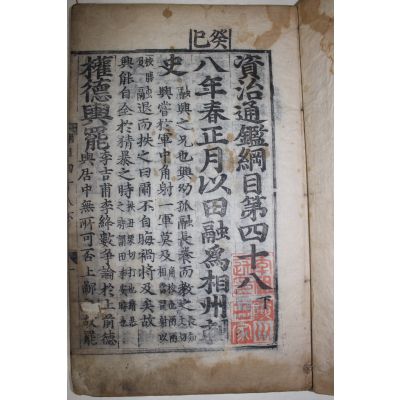 癸巳
資治通鑑綱目第四十八下
八年春正月以田融爲相州刺
史 融興之兄也興幼孤融長養而敎之
興嘗於軍中角射一軍莫及
融退而抶之曰爾不自晦禍將及矣故
興能自全於猜暴之時
權德輿罷 李吉甫李絳數爭論於上前德
輿居中無所可否上鄙之故罷